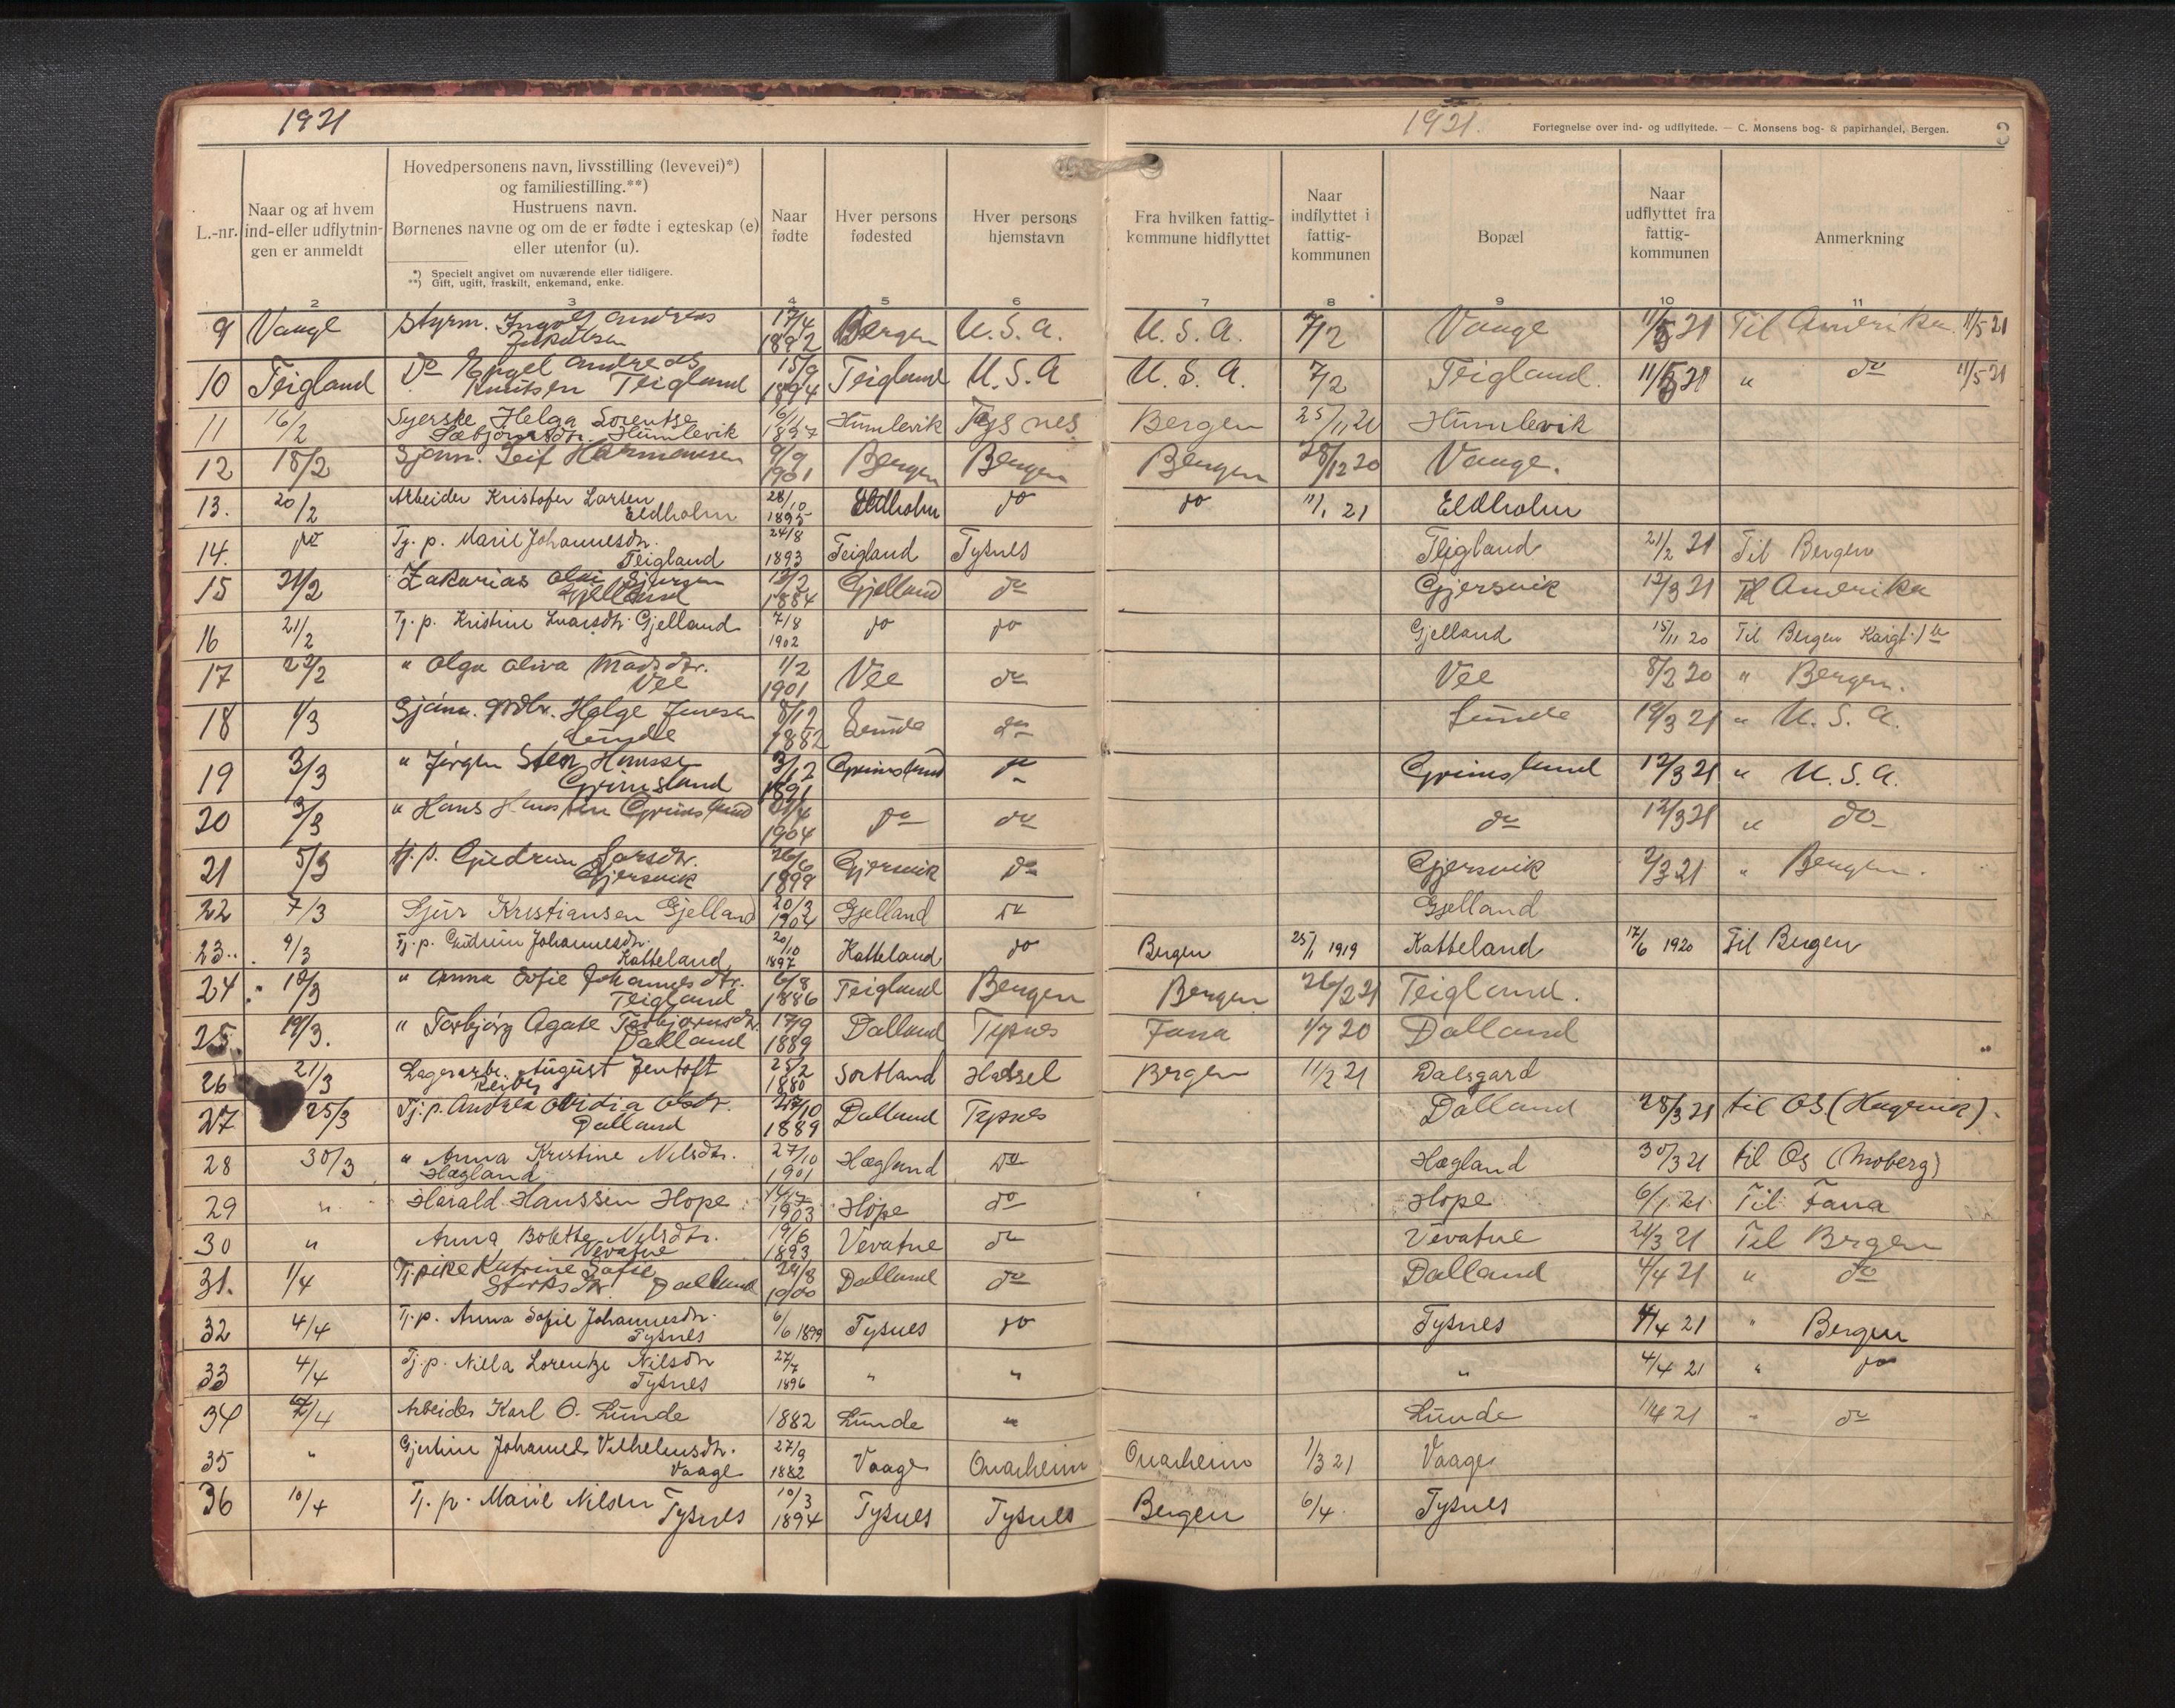 1921
1921.
Fortegnelse over ind- og udflyttede. — C. Monsens bog- & papirhandel, Bergen.
3
L.-nr.
Naar og af hvem ind-eller udflytnin-gen er anmeldt
Hovedpersonens navn, livsstilling (levevei)*)
og familiestilling.**)
Hustruens navn.
Børnenes navne og om de er fødte i egteskap (e)
eller utenfor (u).
*) Specielt angivet om nuværende eller tidligere.
**) Gift, ugift, fraskilt, enkemand, enke.
Naar fødte
Hver persons fødested
Hver persons hjemstavn
Fra hvilken fattig-kommune hidflyttet
Naar indflyttet i fattig-kommunen
Bopæl
Naar udflyttet fra fattig-kommunen
Anmerkning
2 3 4 5 6 7 8 9 10 11
9 Vaage Styrm. Ingolf Andreas Jakobsen 17/4 1892 Bergen U.S.A. U.S.A. 7/2 Vaage 11/5 21 Til Amerika 11/5 21
10 Teigland Do Engel Andreas Knutsen Teigland 15/9 1894 Teigland U.S.A U.S.A. 7/2 Teigland. 11/5 21 " do 11/5 21
11 16/2 Syerske Helga Sorentse Sæbjørnsdtr. Humlevik 16/11 1897 Humlevik Tysnes Bergen 25/11 20 Humlevik
12 18/2 Sjøm. Leif Hermansen 9/9 1901 Bergen Bergen Bergen 28/12 20 Vaage.
13. 20/2 Arbeider Kristofer Larsen Eldholm 28/10 1895 Eldholm do do 11/1 21 Eldholm
14. do Tj. p. Marie Johannesdtr. Teigland 24/8 1893 Teigland Tysnes Teigland 21/2 21 Til Bergen
15 21/2 Zakarias Olai Sjursen Gjelland 13/2 1884 Gjelland do Gjersvik 12/3 21 Til Amerika
16 21/2 Tj. p. Kristine Ivarsdtr Gjelland 7/8 1902 do do Gjelland 15/11 20 Til Bergen
17 22/2 " Olga Oliva Madsdtr. Vee 1/2 1901 Vee do Vee 8/2 20 " Bergen.
18 1/3 Sjøm. Helge Jensen Lunde 8/12 1882 Lunde do Lunde 19/3 21 " U.S.A.
19 3/3 " Jørgen Sten Hansse Grimsland 3/12 1891 Grimsland do Grimsland 12/3 21 " U.S.A.
20 3/3 " Hans Grimsland 1904 do do do 12/3 21 " do
21 5/3 Tj. p. Gudrun Larsdtr. Gjersvik 26/6 1899 Gjersvik do Gjersvik 2/3 21 " Bergen.
22 7/3 Sjur Kristiansen Gjelland 20/3 1904 Gjelland do Gjelland
23. 9/3 Tj. p. Gudrun Johannesdtr. Katteland 20/10 1897 Katteland do Bergen 25/1 1919 Katteland 17/6 1920 Til Bergen
24 12/3 " Anna Sofie Johannesdtr. Teigland 6/8 1886 Teigland Bergen Bergen 26/2 21 Teigland.
25. 19/3. " Torbjørg Agate Torbjørnsdtr. Dalland 17/9 1889 Dalland Tysnes Fana 1/7 20 Dalland "
26 21/3 Lagerarb. August Jentoft Reiber 25/2 1880 Sortland Hassel Bergen 11/2 21 Dalsgard
27 25/3 Tj. p. Andrea Ovidia Olsdtr. Dalland 27/10 1889 Dalland Tysnes Dalland 28/3 21 til Os (Hagevik).
28 30/3 " Anna Kristine Nilsdtr. Hægland 27/10 1901 Hægland do Hægland 30/3 21 til Os (Moberg)
29 " Harald Hanssen Hope 1903 Hope do Hope 6/1 21 Til Fana
30 " Anna Bolette Nilsdtr. Vevatne 19/6 1893 Vevatne do Vevatne 21/3 21 Til Bergen
31. 1/4 Tj. pike Katrine Sofie Størksdtr. Dalland 24/8 1900 Dalland do Dalland 4/4 21 " do
32 4/4 Tj. p. Anna Sofie Johannesdtr. Tysnes 6/6 1899 Tysnes do Tysnes 4/4 21 " Bergen
33 4/4 Tj. p. Nilla Lorentze Nilsdtr Tysnes 27/7 1896 " " " 4/4 21 " do
34 Arbeider Karl O. Lunde 1882 Lunde " Lunde 1/4 21 " do
35 " Gjertine Johanne Vilhelmsdtr. Vaage 27/9 1882 Vaage Onarheim Onarheim 1/3 21 Vaage
36 10/4 Tj. p. Marie Nilsen Tysnes 10/3 1894 Tysnes Tysnes Bergen 6/4 Tysnes